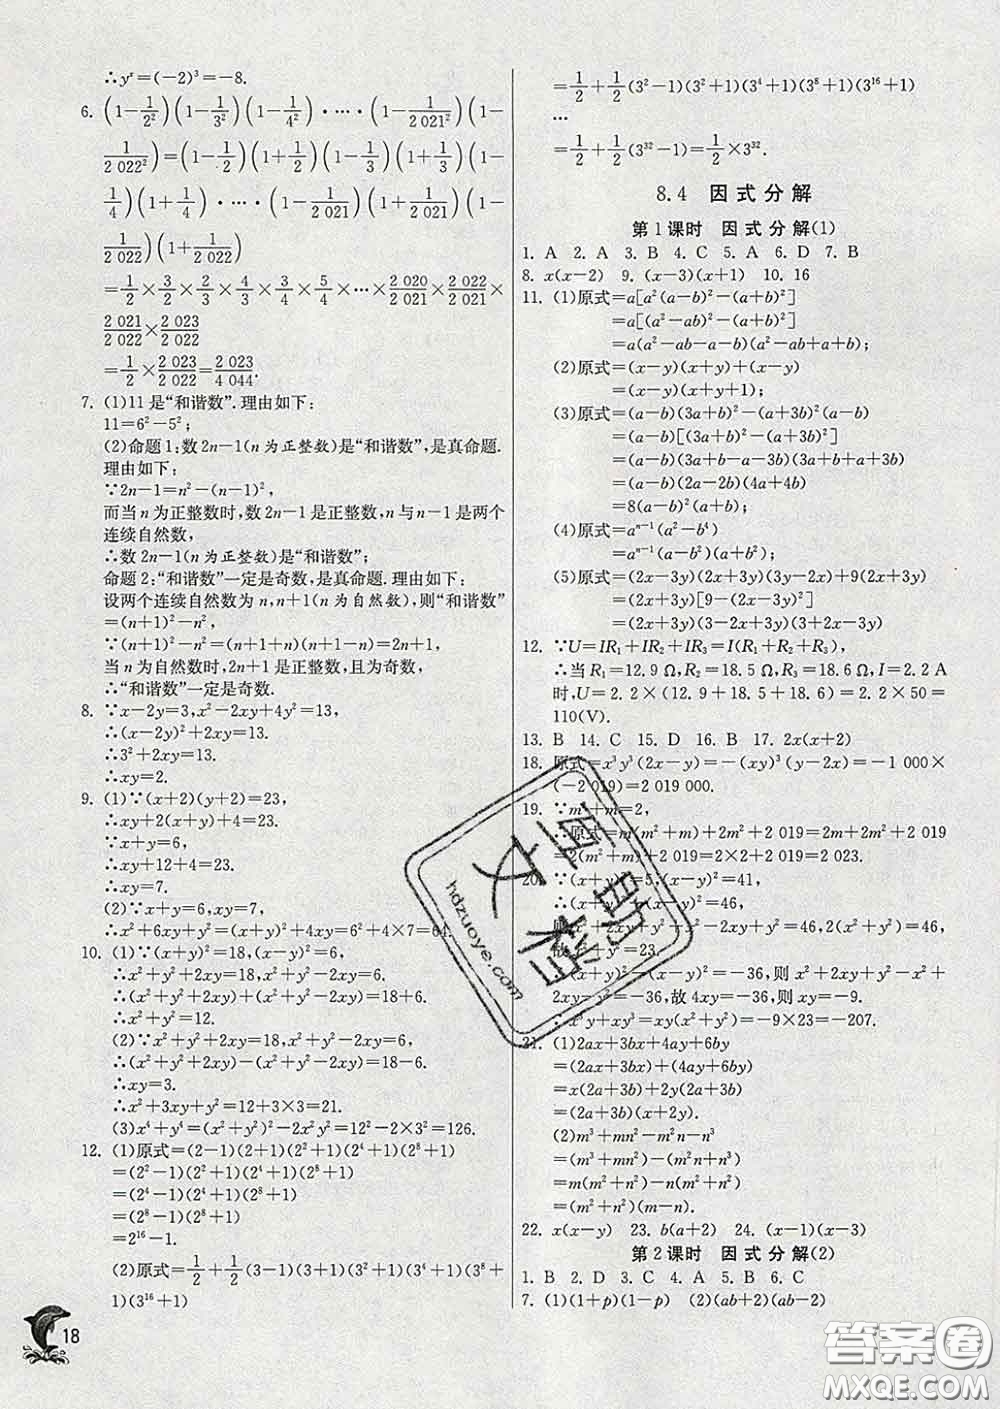 ∴yˣ=(-2)³=-8.
6. (1-1/2²)(1-1/3²)(1-1/4²)·…·(1-1/2 021²)(1-
1/2 022²)=(1-1/2)(1+1/2)(1-1/3)(1+1/3)(1-
1/4)(1+1/4)·…·(1-1/2 021)(1+1/2 021)(1-
1/2 022)(1+1/2 022)
=1/2×3/2×2/3×4/3×3/4×5/4×…×2 020/2 021×2 022/2 021×
2 021/2 022×2 023/2 022
=1/2×2 023/2 022=2 023/4 044.
7. (1)11是“和谐数”.理由如下:
11=6²-5²;
(2)命题1:数2n-1(n为正整数)是“和谐数”,是真命题.
理由如下:
∵2n-1=n²-(n-1)²,
而当n为正整数时,数2n-1是正整数,n与n-1是两个
连续自然数,
∴数2n-1(n为正整数)是“和谐数”;
命题2:“和谐数”一定是奇数,是真命题.理由如下:
设两个连续自然数为n,n+1(n为自然数),则“和谐数”
=(n+1)²-n²,
∵(n+1)²-n²=(n+1+n)(n+1-n)=2n+1,
当n为自然数时,2n+1是正整数,且为奇数,
∴“和谐数”一定是奇数.
8. ∵x-2y=3,x²-2xy+4y²=13,
∴(x-2y)²+2xy=13.
∴3²+2xy=13.
∴xy=2.
9. (1)∵(x+2)(y+2)=23,
∴xy+2(x+y)+4=23.
∵x+y=6,
∴xy+12+4=23.
∴xy=7.
(2)∵x+y=6,xy=7,
∴x²+6xy+y²=(x+y)²+4xy=6²+4×7=64.
10. (1)∵(x+y)²=18,(x-y)²=6,
∴x²+y²+2xy=18,x²+y²-2xy=6.
∴(x²+y²+2xy)+(x²+y²-2xy)=18+6.
∴x²+y²=12.
(2)∵x²+y²+2xy=18,x²+y²-2xy=6,
∴(x²+y²+2xy)-(x²+y²-2xy)=18-6.
∴xy=3.
∴x²+3xy+y²=12+3×3=21.
(3)x⁴+y⁴=(x²+y²)²-2x²y²=12²-2×3²=126.
12. (1)原式=(2-1)(2+1)(2²+1)(2⁴+1)(2⁸+1)
=(2²-1)(2²+1)(2⁴+1)(2⁸+1)
=(2⁴-1)(2⁴+1)(2⁸+1)
=(2⁸-1)(2⁸+1)
=2¹⁶-1.
(2)原式=1/2+1/2(3-1)(3+1)(3²+1)(3⁴+1)(3⁸+
1)(3¹⁶+1)
18
=1/2+1/2(3²-1)(3²+1)(3⁴+1)(3⁸+1)(3¹⁶+1)
…
=1/2+1/2(3³²-1)=1/2×3³².
8.4 因式分解
第1课时 因式分解(1)
1. A 2. A 3. B 4. C 5. A 6. D 7. B
8. x(x-2) 9. (x-3)(x+1) 10. 16
11. (1)原式=a[a²(a-b)²-(a+b)²]
=a[(a²-ab)²-(a+b)²]
=a(a²-ab-a-b)(a²-ab+a+b);
(2)原式=(x-y)(x+y)+(x-y)
=(x-y)(x+y+1);
(3)原式=(a-b)(3a+b)²-(a+3b)²(a-b)
=(a-b)[(3a+b)²-(a+3b)²]
=(a-b)(3a+b-a-3b)(3a+b+a+3b)
=(a-b)(2a-2b)(4a+4b)
=8(a-b)²(a+b);
(4)原式=aⁿ⁻¹(a²-b⁴)
=aⁿ⁻¹(a-b²)(a+b²);
(5)原式=(2x-3y)(2x+3y)(3y-2x)+9(2x+3y)
=(2x+3y)[9-(2x-3y)²]
=(2x+3y)(3-2x+3y)(3+2x-3y)
12. ∵U=IR₁+IR₂+IR₃=I(R₁+R₂+R₃),
∴当R₁=12.9 Ω,R₂=18.5 Ω,R₃=18.6 Ω,I=2.2 A
时,U=2.2×(12.9+18.5+18.6)=2.2×50=
110(V).
13. B 14. C 15. D 16. B 17. 2x(x+2)
18. 原式=x³y³(2x-y)=-(xy)³(y-2x)=-1 000×
(-2 019)=2 019 000.
19. ∵m²+m=2,
∴原式=m(m²+m)+2m²+2 019=2m+2m²+2 019
=2(m²+m)+2 019=2×2+2 019=2 023.
20. ∵(x+y)²=5,(x-y)²=41,
∴(x+y)²+(x-y)²=46,
则x²+2xy+y²+x²-2xy+y²=46,2(x²+y²)=46,
故x²+y²=23.
∴(x+y)²-(x-y)²=-36,则x²+2xy+y²-x²+
2xy-y²=-36,故4xy=-36,则xy=-9.
∴x³y+xy³=xy(x²+y²)=-9×23=-207.
21. (1)2ax+3bx+4ay+6by
=(2ax+3bx)+(4ay+6by)
=x(2a+3b)+2y(2a+3b)
=(2a+3b)(x+2y).
(2)m³+mn²-m²n-n³
=(m³+mn²)-(m²n+n³)
=m(m²+n²)-n(m²+n²)
=(m²+n²)(m-n).
22. x(x-y) 23. b(a+2) 24. (x-1)(x-3)
第2课时 因式分解(2)
1. B 2. D 3. C 4. A 5. B 6. C
7. (1)(1+p)(1-p) (2)(ab+2)(ab-2)
hdzuoye.com
答案圈
MXQE.COM